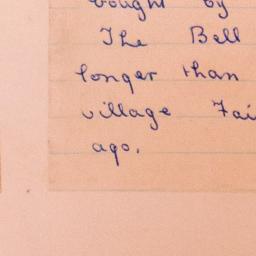 bought by
The Bell
longer than
village Fai
ago.